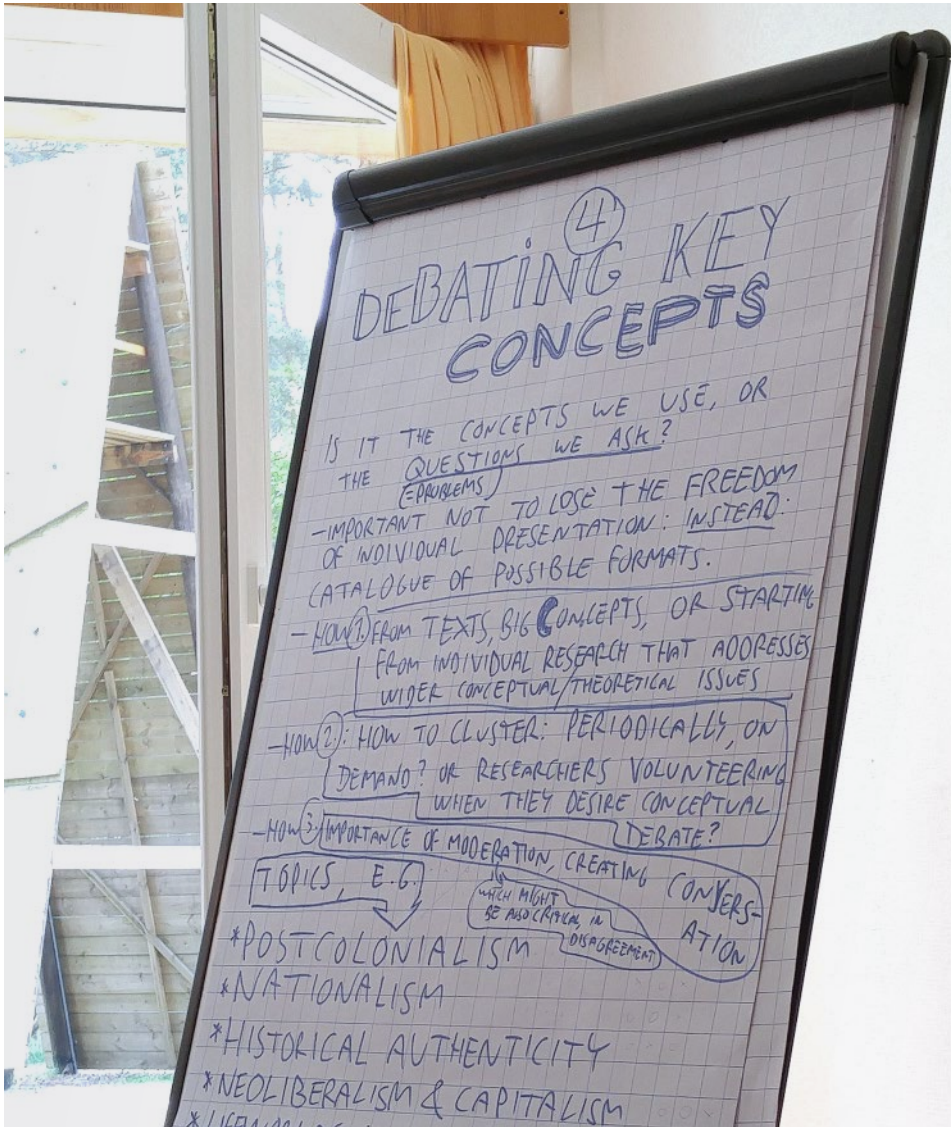 4
DEBATING KEY
CONCEPTS
IS IT THE CONCEPTS WE USE, OR
THE QUESTIONS WE ASK?
(=PROBLEMS)
-IMPORTANT NOT TO LOSE THE FREEDOM
OF INDIVIDUAL PRESENTATION: INSTEAD:
CATALOGUE OF POSSIBLE FORMATS.
- HOW 1. FROM TEXTS, BIG CONCEPTS, OR STARTING
FROM INDIVIDUAL RESEARCH THAT ADDRESSES
WIDER CONCEPTUAL/THEORETICAL ISSUES
-HOW 2.: HOW TO CLUSTER: PERIODICALLY, ON
DEMAND? OR RESEARCHERS VOLUNTEERING
WHEN THEY DESIRE CONCEPTUAL
DEBATE?
-HOW 3. IMPORTANCE OF MODERATION, CREATING CONVERS-
ATION
WHICH MIGHT
BE ALSO CRITICAL, IN
DISAGREEMENT
TOPICS, E.G.
*POSTCOLONIALISM
*NATIONALISM
*HISTORICAL AUTHENTICITY
*NEOLIBERALISM & CAPITALISM